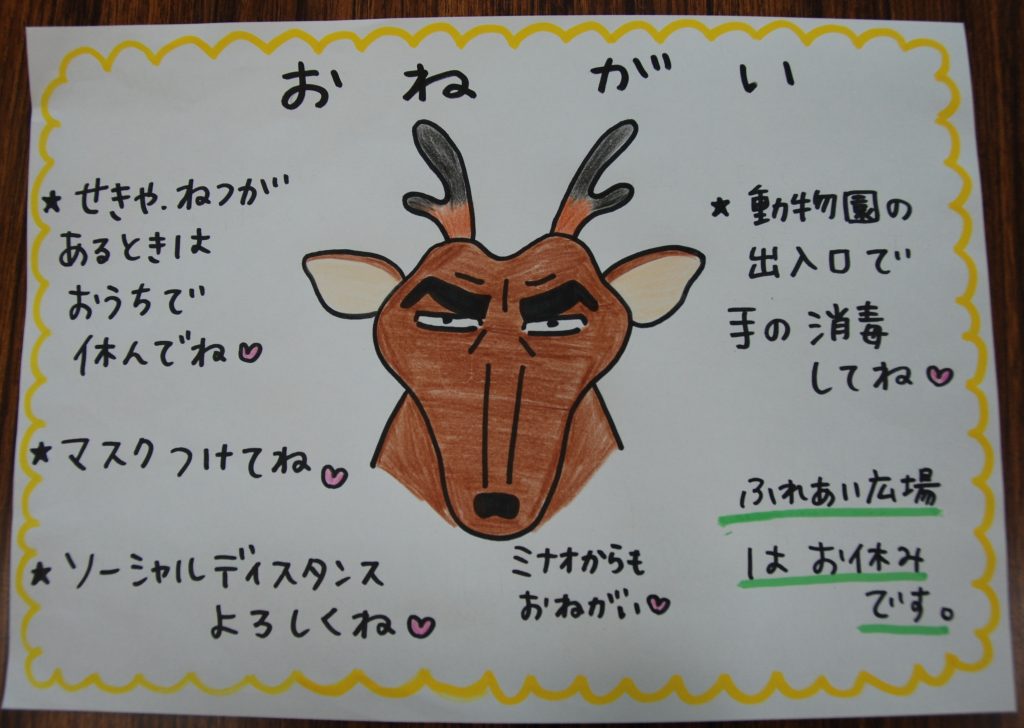 おねがい
★せきや.ねつが
あるときは
おうちで
休んでね
★マスクつけてね
★ソーシャルディスタンス
よろしくね
ミナオからも
おねがい
★動物園の
出入口で
手の消毒
してね
ふれあい広場
はお休み
です。